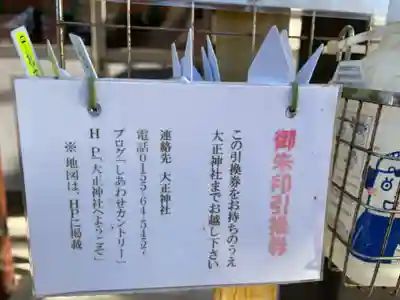 御朱印引換券
この引換券をお持ちのうえ
大正神社までお越し下さい
連絡先 大正神社
電話0155-64-5452・
ブログ「しあわせカントリー」
HP「大正神社へようこそ」
※地図は、HPに掲載